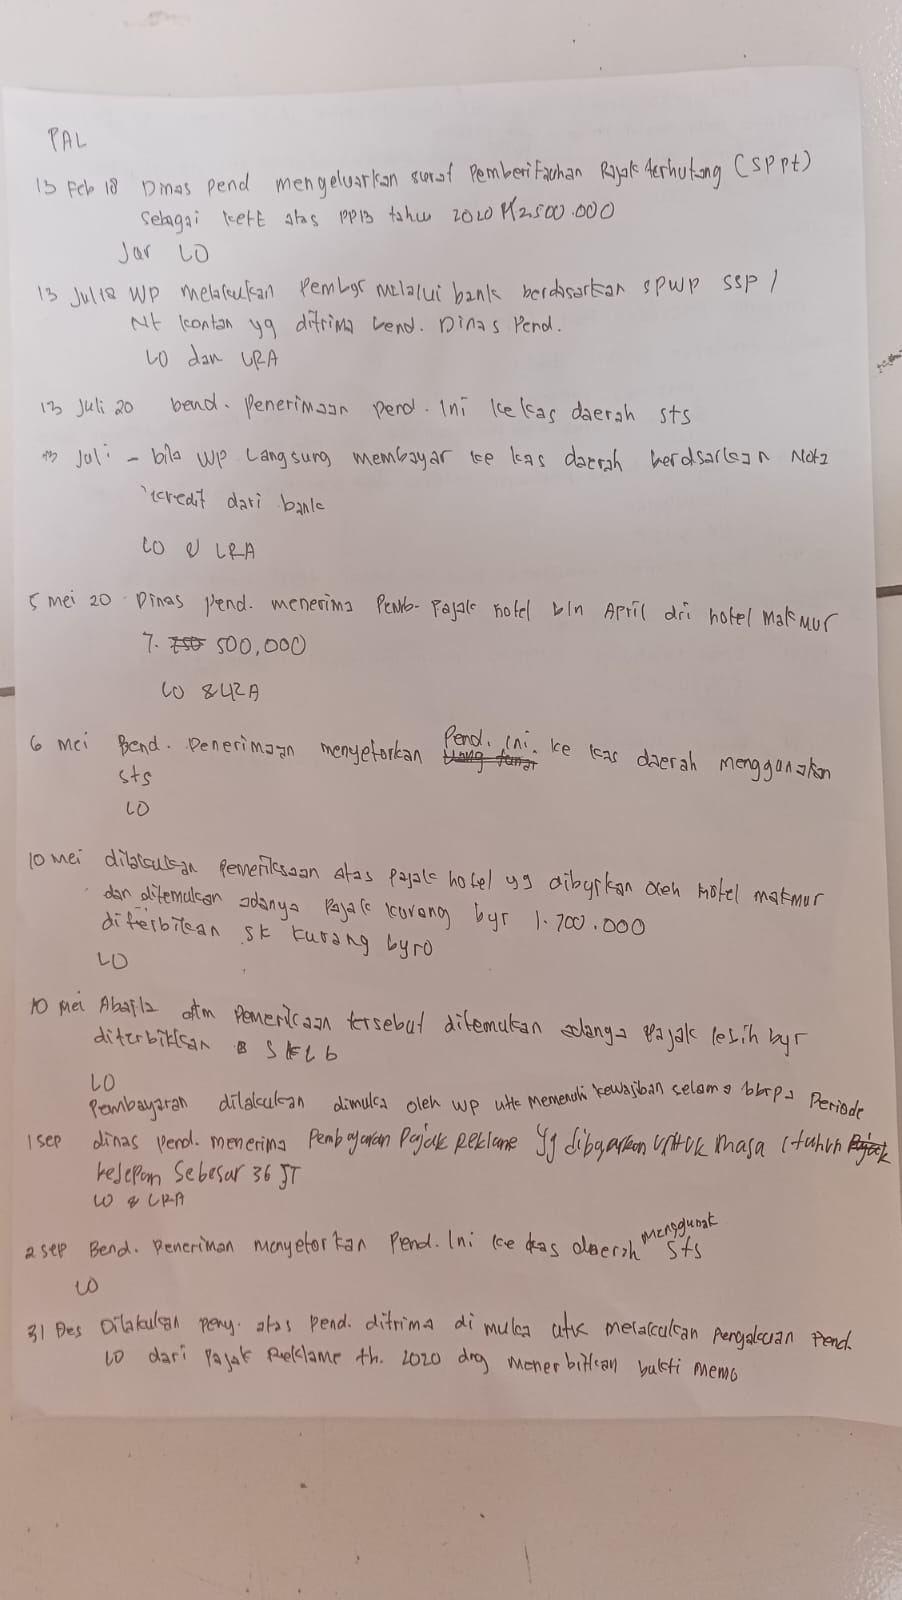 PAL
13 Feb 18 Dinas pend mengeluarkan surat Pemberitauhan Pajak terhutang (SPPt)
sebagai kett atas PPB tahun 2020 12.500.000
Jar LO
13 Jul 18 WP melakukan Pembyr melalui bank berdasarkan SPWP SSP /
Nt kontan yg ditrima bend. Dinas Pend.
LO dan LRA
13 Juli 20 bend. penerimaan pend. Ini ke kas daerah sts
13 Juli - bila WP Langsung membayar ke kas daerah berdsarkan Nota
kredit dari bank
LO & LRA
5 mei 20 Dinas pend. menerima Pemb. Pajak hotel bln April dri hotel Makmur
7. 500,000
LO & LRA
6 mei Bend. Penerimaan menyetorkan Pend. Ini ke kas daerah menggunakan
sts
LO
10 mei dilakukan pemeriksaan atas pajak hotel yg dibyrkan oleh Hotel makmur
dan ditemukan adanya Pajak kurang byr 1.700.000
diterbitkan SK kurang byr
LO
10 Mei Abaila dtm Pemerikaan tersebut ditemukan adanya Pajak lesih byr
diterbitkan SKLb
LO
Pembayaran dilakukan dimuka oleh WP utk memenuhi kewajiban selama bbrpa Periode
1 sep dinas pend. menerima Pembayaran Pajak Reklame yg dibyarkan untuk masa 1 tahun
kedepan sebesar 36 JT
LO & LRA
2 sep Bend. Peneriman menyetorkan Pend. Ini ke kas daerah menggunak sts
LO
31 Des Dilakukan peny. atas pend. ditrima di muka utk melakukan pengakuan pend.
LO dari Pajak Reklame th. 2020 dng menerbitkan bukti memo